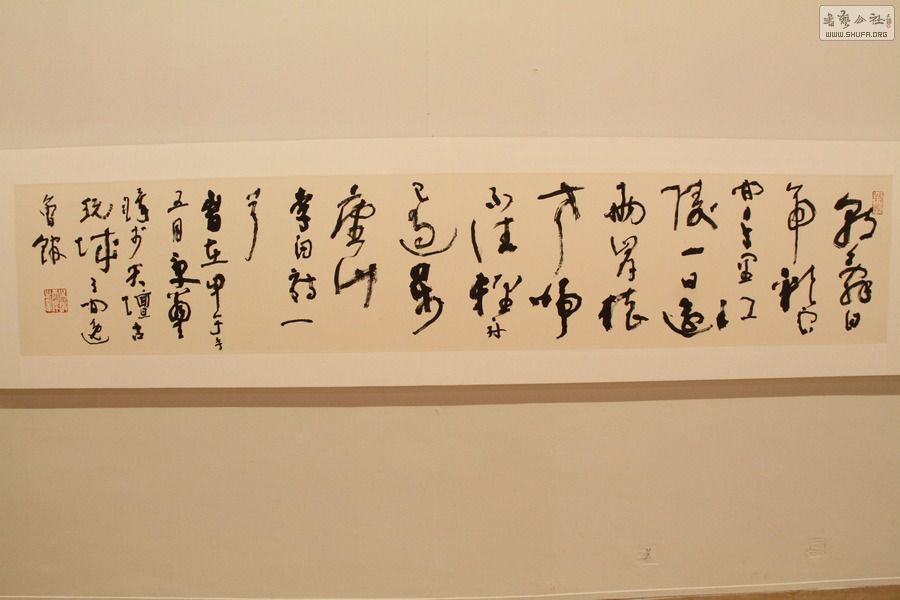 朝辭白
帝彩雲
間千里江
陵一日還
兩岸猿
聲啼
不住輕舟
已過萬
重山
李白詩一
首
歲在甲午年
五月
璋於天壇古
玩城之
書藝公社
WWW.SHUFA.ORG